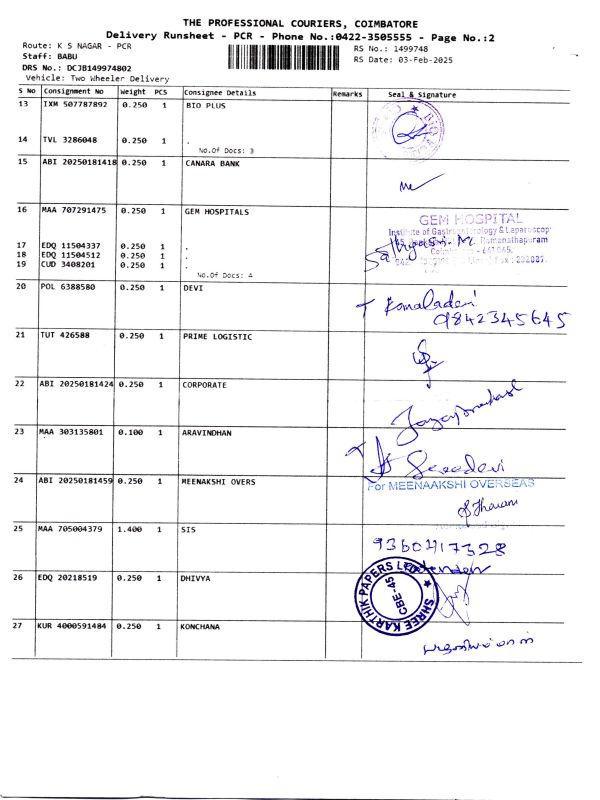 THE PROFESSIONAL COURIERS, COIMBATORE
Delivery Runsheet - PCR - Phone No.:0422-3505555 - Page No.:2
Route: K S NAGAR - PCR
RS No.: 1499748
Staff: BABU
RS Date: 03-Feb-2025
DRS No.: DCJB149974802
Vehicle: Two Wheeler Delivery
S No Consignment No Weight PCS Consignee Details Remarks Seal & Signature
13 IXM 507787892 0.250 1 BIO PLUS
14 TVL 3286048 0.250 1 .
No.Of Docs: 3
15 ABI 20250181418 0.250 1 CANARA BANK
16 MAA 707291475 0.250 1 GEM HOSPITALS
GEM HOSPITAL
Institute of Gastroenterology & Laparoscopy
Ramanathapuram
17 EDQ 11504337 0.250 1 .
18 EDQ 11504512 0.250 1 .
19 CUD 3408201 0.250 1 .
No.Of Docs: 4
20 POL 6388580 0.250 1 DEVI
Komaladevi
9842345645
21 TUT 426588 0.250 1 PRIME LOGISTIC
22 ABI 20250181424 0.250 1 CORPORATE
23 MAA 303135801 0.100 1 ARAVINDHAN
24 ABI 20250181459 0.250 1 MEENAKSHI OVERS
For MEENAAKSHI OVERSEAS
25 MAA 705004379 1.400 1 SIS
9360417328
26 EDQ 20218519 0.250 1 DHIVYA
SHREE KARTHIK PAPERS LTD
CBE-45
27 KUR 4000591484 0.250 1 KONCHANA